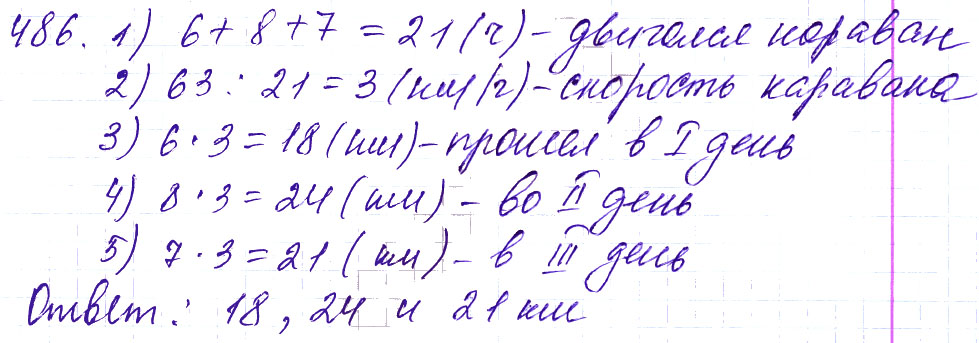 486. 1) 6 + 8 + 7 = 21 (ч) - двигался караван
2) 63 : 21 = 3 (км/ч) - скорость каравана
3) 6 · 3 = 18 (км) - прошел в I день
4) 8 · 3 = 24 (км) - во II день
5) 7 · 3 = 21 (км) - в III день
Ответ: 18, 24 и 21 км